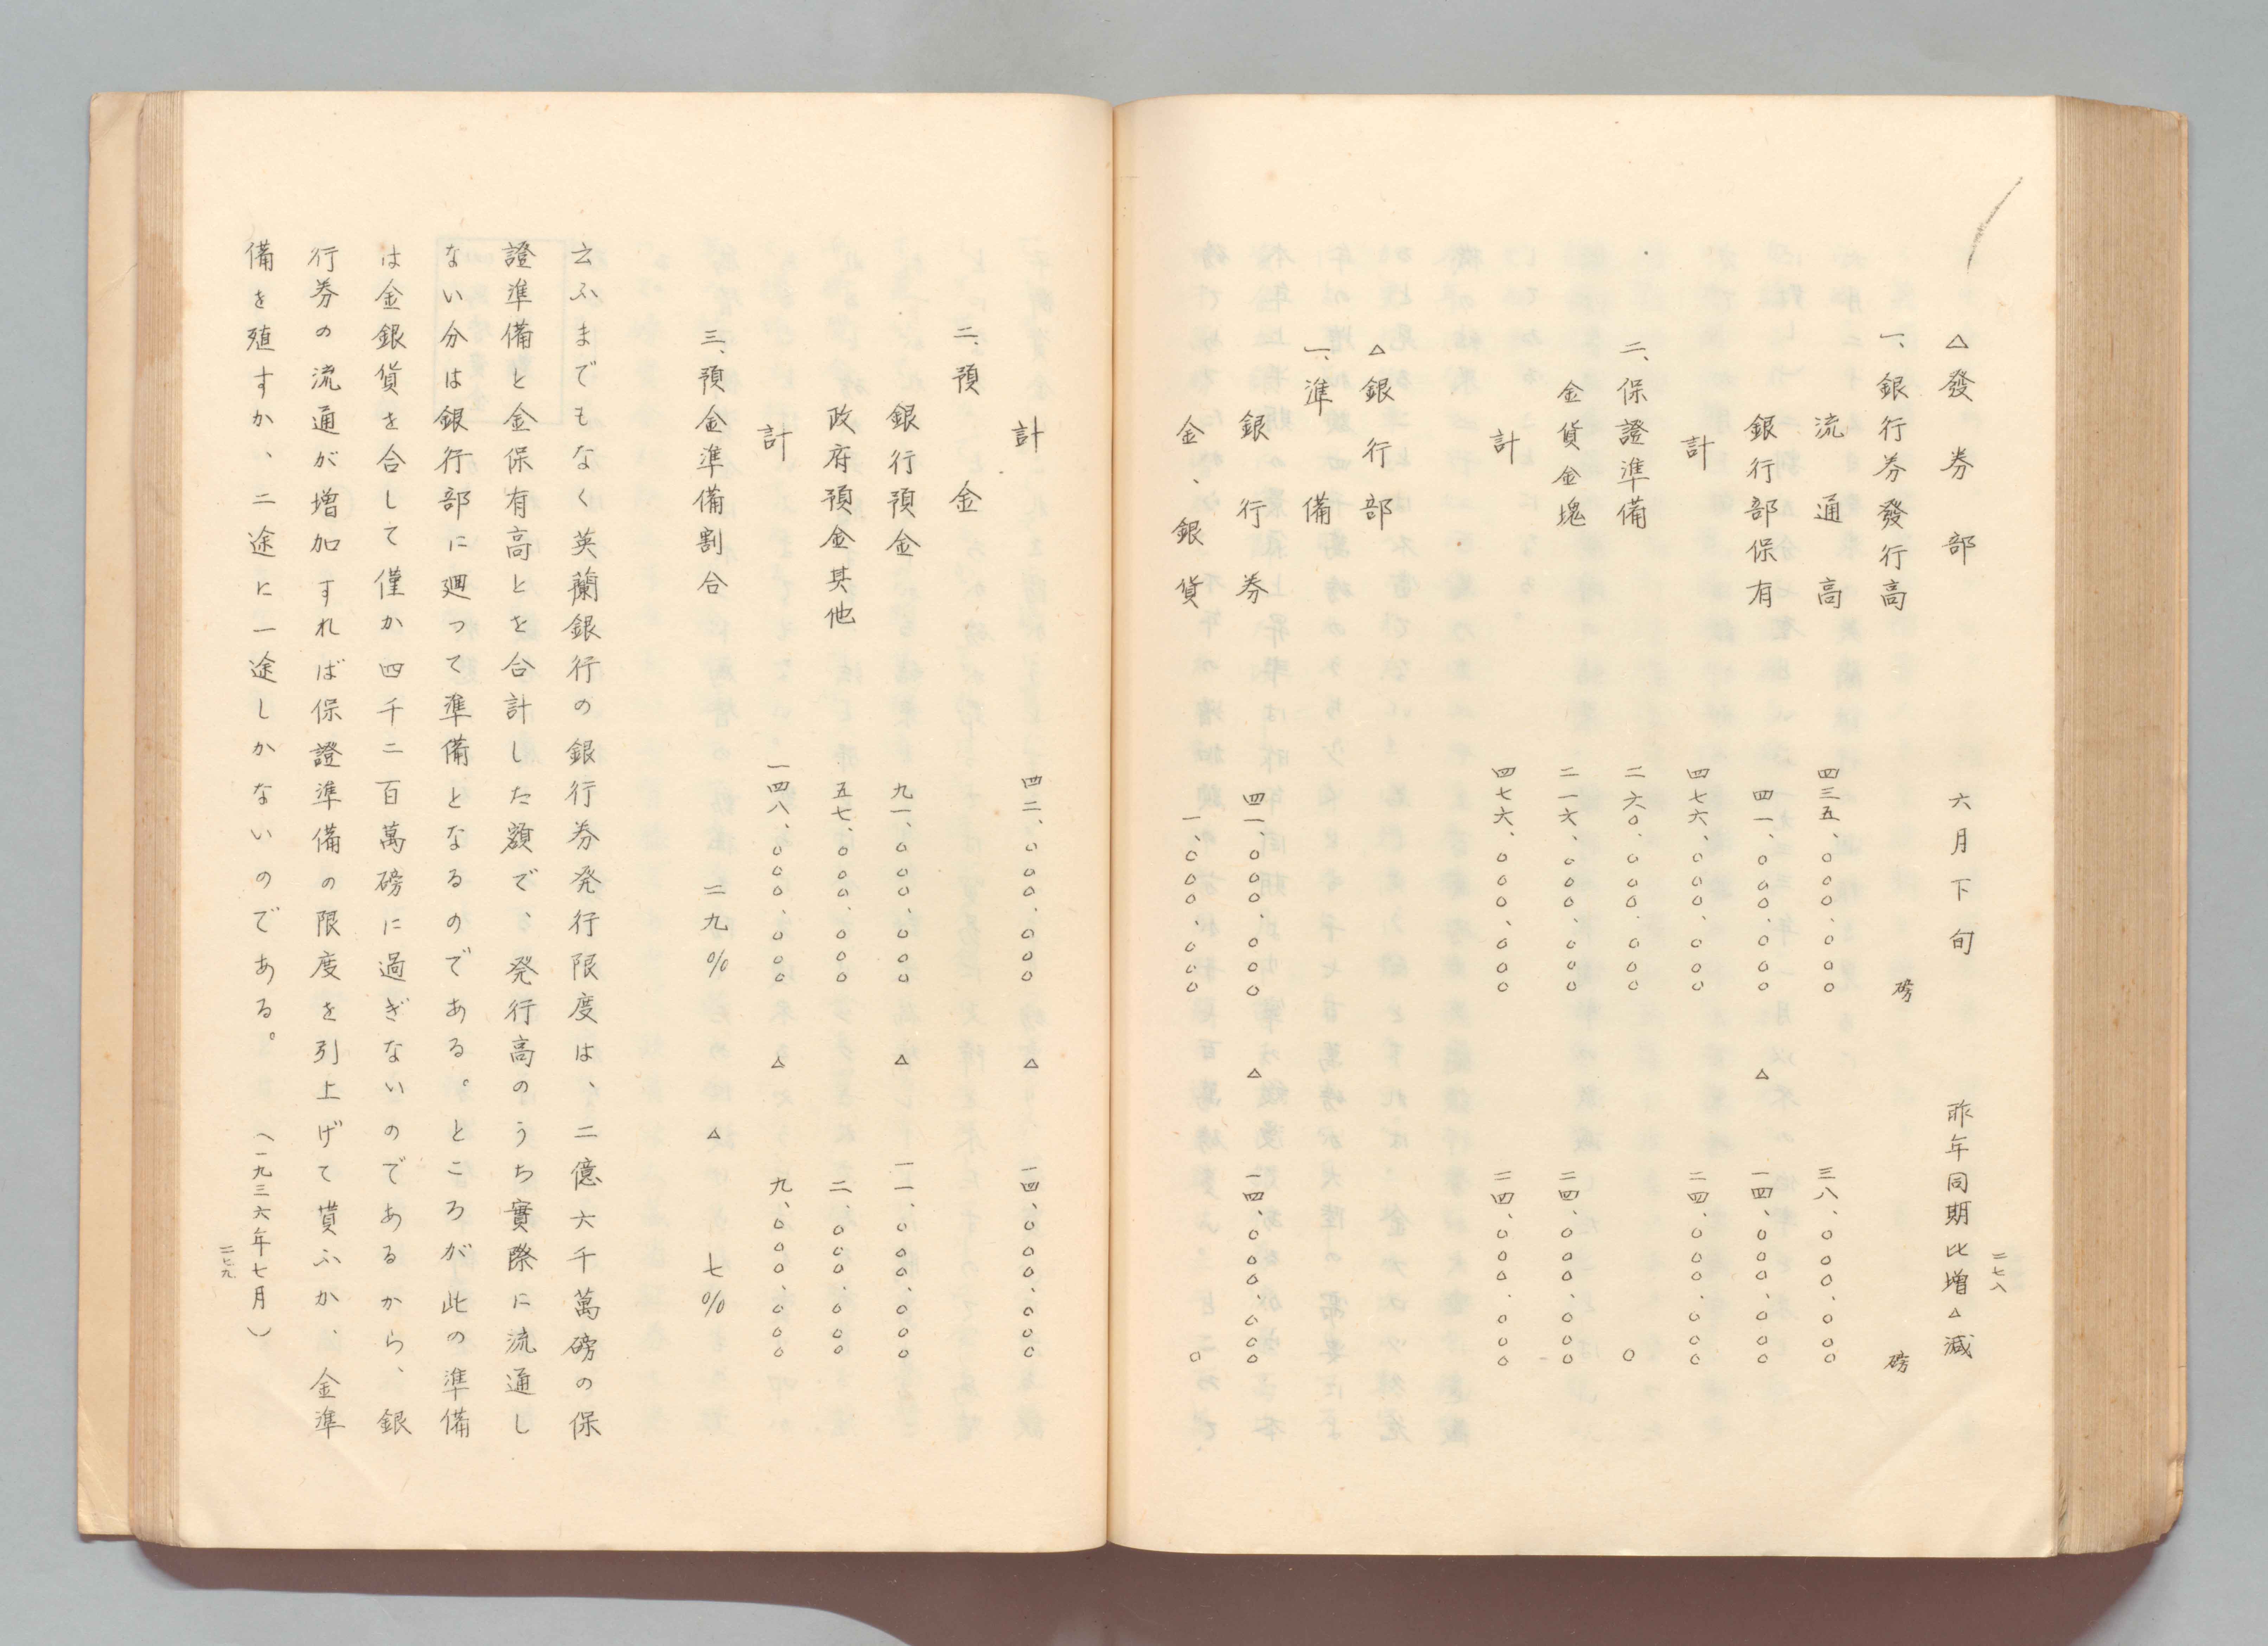 二七八
△發券部　六月下旬　昨年同期比增△減
一、銀行券發行高　磅　磅
流通高　四三五、〇〇〇、〇〇〇　三八、〇〇〇、〇〇〇
銀行部保有　四一、〇〇〇、〇〇〇　△　一四、〇〇〇、〇〇〇
計　四七六、〇〇〇、〇〇〇　二四、〇〇〇、〇〇〇
二、保證準備　二六〇、〇〇〇、〇〇〇　〇
金貨金塊　二一六、〇〇〇、〇〇〇　二四、〇〇〇、〇〇〇
計　四七六、〇〇〇、〇〇〇　二四、〇〇〇、〇〇〇
△銀行部
一、準備
銀行券　四一、〇〇〇、〇〇〇　△　一四、〇〇〇、〇〇〇
金、銀貨　一、〇〇〇、〇〇〇　〇
計　四二、〇〇〇、〇〇〇　△　一四、〇〇〇、〇〇〇
二、預金
銀行預金　九一、〇〇〇、〇〇〇　△　一一、〇〇〇、〇〇〇
政府預金其他　五七、〇〇〇、〇〇〇　二、〇〇〇、〇〇〇
計　一四八、〇〇〇、〇〇〇　△　九、〇〇〇、〇〇〇
三、預金準備割合　二九%　△　七%
云ふまでもなく英蘭銀行の銀行券発行限度は、二億六千萬磅の保
證準備と金保有高とを合計した額で、発行高のうち實際に流通し
ない分は銀行部に廻って準備となるのである。ところが此の準備
は金銀貨を合して僅か四千二百萬磅に過ぎないのであるから、銀
行券の流通が増加すれば保證準備の限度を引上げて貰ふか、金準
備を殖すか、二途に一途しかないのである。（一九三六年七月）
二七九